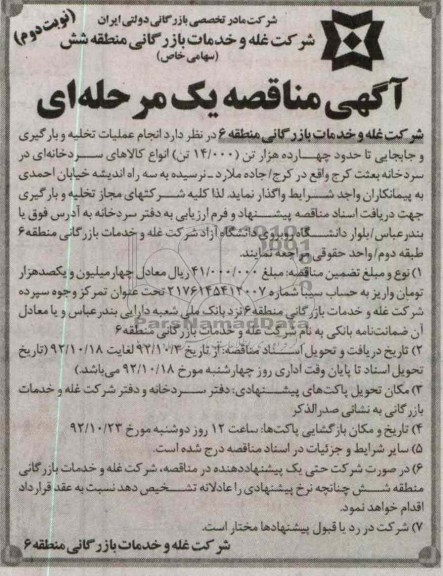 شرکت مادر تخصصی بازرگانی دولتی ایران
(نوبت دوم)
شرکت غله و خدمات بازرگانی منطقه شش
(سهامی خاص)
آگهی مناقصه یک مرحله‌ای
شرکت غله و خدمات بازرگانی منطقه ۶ در نظر دارد انجام عملیات تخلیه و بارگیری
و جابجایی تا حدود چهارده هزار تن (۱۴/۰۰۰ تن) انواع کالاهای سردخانه‌ای در
سردخانه بعثت کرج واقع در کرج/جاده ملارد-نرسیده به سه راه اندیشه خیابان احمدی
به پیمانکاران واجد شرایط واگذار نماید. لذا کلیه شرکتهای مجاز تخلیه و بارگیری
جهت دریافت اسناد مناقصه پیشنهاد و فرم ارزیابی به دفتر سردخانه به آدرس فوق یا
بندرعباس/بلوار دانشگاه روبروی دانشگاه آزاد شرکت غله و خدمات بازرگانی منطقه ۶
طبقه دوم/واحد حقوقی مراجعه نمایند.
۱) نوع و مبلغ تضمین مناقصه: مبلغ ۴۱/۰۰۰/۰۰۰ ریال معادل چهار میلیون و یکصدهزار
تومان واریز به حساب سیبا شماره ۲۱۷۶۱۴۵۴۱۳۰۰۷ تحت عنوان تمرکز وجوه سپرده
شرکت غله و خدمات بازرگانی منطقه ۶ نزد بانک ملی شعبه دارایی بندرعباس و یا معادل
آن ضمانت‌نامه بانکی به نام شرکت غله و خدمات بازرگانی منطقه ۶
۲) تاریخ دریافت و تحویل اسناد مناقصه: از تاریخ ۹۲/۱۰/۴ لغایت ۹۲/۱۰/۱۸ (تاریخ
تحویل اسناد تا پایان وقت اداری روز چهارشنبه مورخ ۹۲/۱۰/۱۸ می‌باشد.)
۳) مکان تحویل پاکت‌های پیشنهادی: دفتر سردخانه و دفتر شرکت غله و خدمات
بازرگانی به نشانی صدرالذکر
۴) تاریخ و مکان بازگشایی پاکت‌ها: ساعت ۱۲ روز دوشنبه مورخ ۹۲/۱۰/۲۳
۵) سایر شرایط و جزئیات در اسناد مناقصه درج شده است.
۶) در صورت شرکت حتی یک پیشنهاددهنده در مناقصه، شرکت غله و خدمات بازرگانی
منطقه شش چنانچه نرخ پیشنهادی را عادلانه تشخیص دهد نسبت به عقد قرارداد
اقدام خواهد نمود.
۷) شرکت در رد یا قبول پیشنهادها مختار است.
شرکت غله و خدمات بازرگانی منطقه ۶